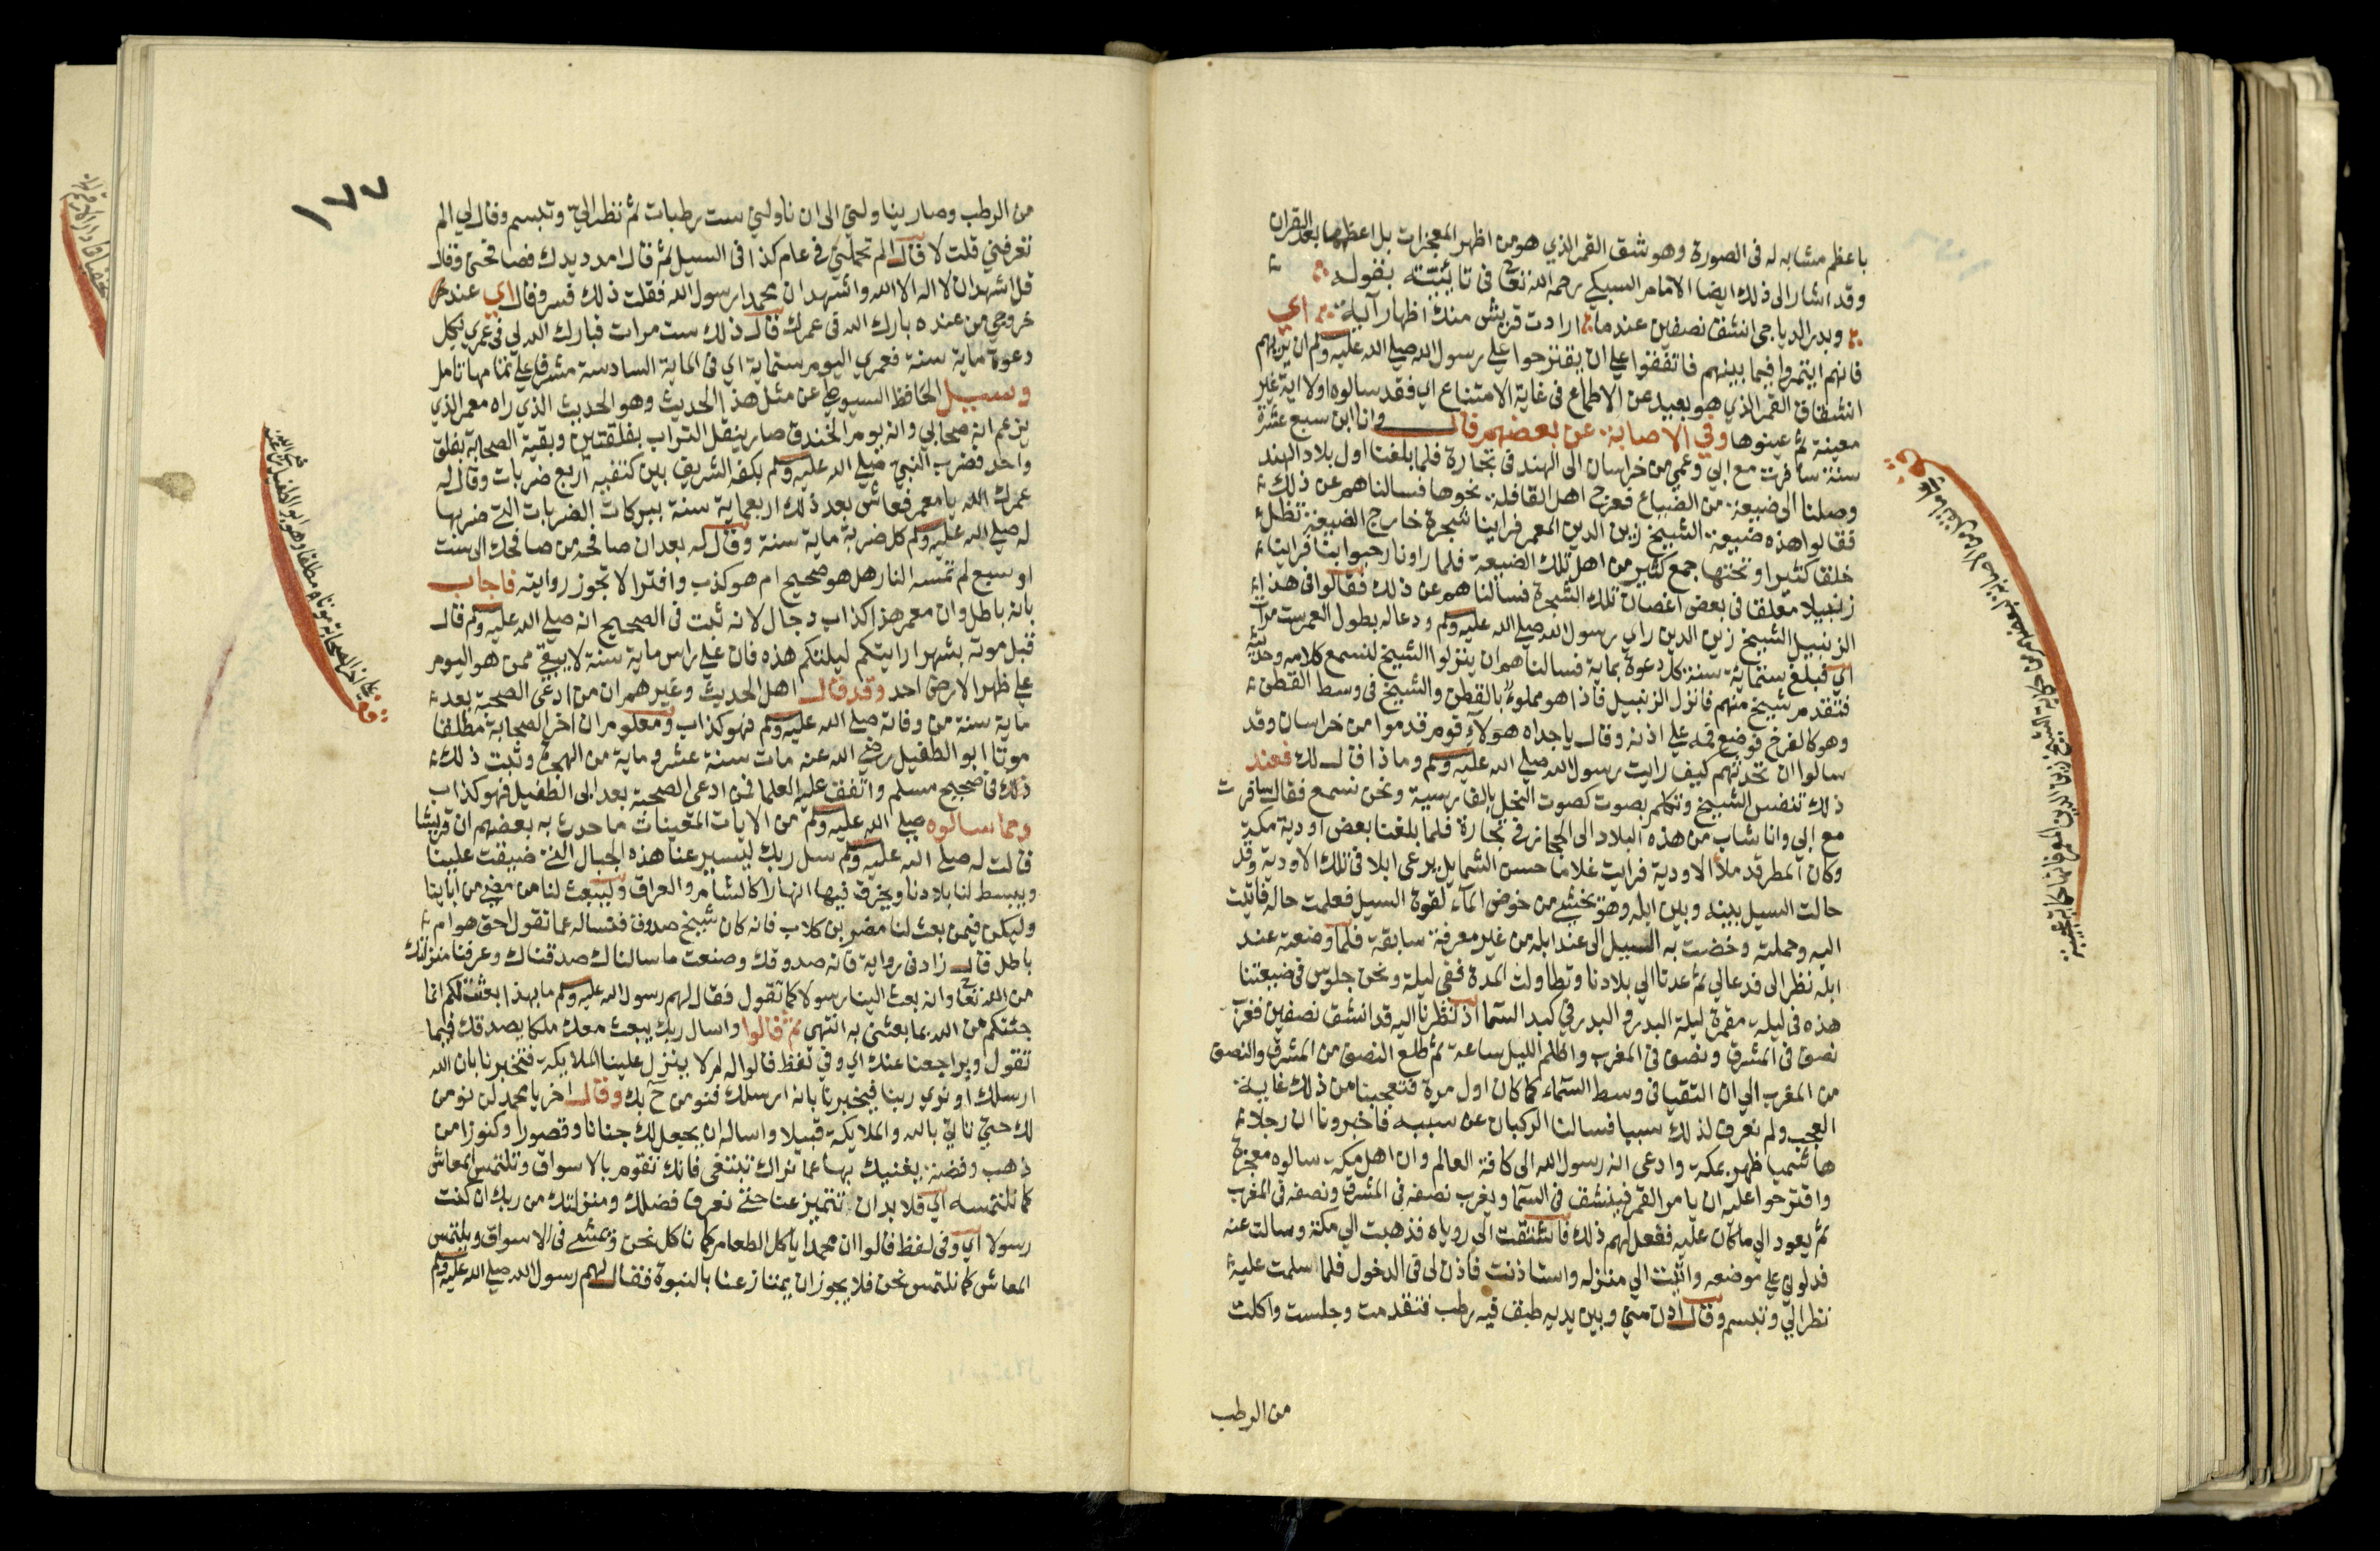 باعظم مشابه له فى الصورة وهو شق القمر الذي هو من اظهر المعجزات بل اعظمها بعد القران
وقد اشار الى ذلك ايضا الامام السبكي رحمه الله تعالى فى تائيته بقوله
وبدر الدياجى انشق نصفين عندما ارادت قريش منك اظهار آية اي
فانهم ايتمروا فيما بينهم فاتفقوا على ان يقترحوا على رسول الله صلى الله عليه وسلم ان يريهم
انشقاق القمر الذي هو بعيد عن الاطماع فى غاية الامتناع اي فقد سالوه اولا اية غير
معينة ثم عينوها وفي الاصابة عن بعضهم قال وانا ابن سبع عشرة
سنة سافرت مع ابي وعمي من خراسان الى الهند فى تجارة فلما بلغنا اول بلاد الهند
وصلنا الى ضيعة من الضياع فعرج اهل القافلة نحوها فسالناهم عن ذلك
فقالوا هذه ضيعة الشيخ زين الدين المعمر فراينا شجرة خارج الضيعة تظل
خلقا كثيرا وتحتها جمع كثير من اهل تلك الضيعة فلما راونا رحبوا بنا فراينا
زنبيلا معلقا فى بعض اغصان تلك الشجرة فسالناهم عن ذلك فقالوا فى هذا
الزنبيل الشيخ زين الدين راي رسول الله صلى الله عليه وسلم ودعا له بطول العمر ست مرات
اي فبلغ ستماية سنة كل دعوة بماية فسالناهم ان ينزلوا الشيخ لنسمع كلامه وحديثه
فتقدم شيخ منهم فانزل الزنبيل فاذا هو مملوء بالقطن والشيخ فى وسط القطن
وهو كالفرخ فوضع فمه على اذنه وقال ياجداه هولاء قوم قدموا من خراسان وقد
سالوا ان تحدثهم كيف رايت رسول الله صلى الله عليه وسلم وماذا قال لك فعند
ذلك تنفس الشيخ وتكلم بصوت كصوت النحل بالفارسية ونحن نسمع فقال سافرت
مع ابى وانا شاب من هذه البلاد الى الحجاز فى تجارة فلما بلغنا بعض اودية مكة
وكان المطر قد ملا الاودية فرايت غلاما حسن الشمايل يرعى ابلا فى تلك الاودية وقد
حالت السيل بينه وبين ابله وهو يخشى من خوض الماء لقوة السيل فعلمت حاله فاتيت
اليه وحملته وخضت به السيل الى عند ابله من غير معرفة سابقة فلما وضعته عند
ابله نظر الى فدعا لي ثم عدنا الى بلادنا وتطاولت المدة ففى ليلة ونحن جلوس فى ضيعتنا
هذه فى ليلة مقمرة ليلة البدر و البدر في كبد السما اذ نظرنا اليه قد انشق نصفين فغرب
نصف فى المشرق ونصف فى المغرب واظلم الليل ساعة ثم طلع النصف من المشرق والنصف
من المغرب الى ان التقيا فى وسط السماء كما كان اول مرة فتعجبنا من ذلك غاية
العجب ولم نعرف لذلك سببا فسالنا الركبان عن سببه فاخبرونا ان رجلا
هاشميا ظهر بمكة وادعى انه رسول الله الى كافة العالم وان اهل مكة سالوه معجزة
واقترحوا عليه ان يامر القمر فينشق فى السما ويغرب نصفه فى المشرق ونصفه فى المغرب
ثم يعود الى ما كان عليه ففعل لهم ذلك فاشتقت الى روياه فذهبت الى مكة وسالت عنه
فدلوني على موضعه واتيت الى منزله واستاذنت فاذن لى فى الدخول فلما سلمت عليه
نظر الي وتبسم وقال ادن مني وبين يديه طبق فيه رطب فتقدمت وجلست واكلت
من الرطب
١٧٧
من الرطب وصار يناولنى الى ان ناولنى ست رطبات ثم نظر الي وتبسم وقال لى الم
تعرفني قلت لا قال الم تحملنى فى عام كذا فى السيل ثم قال امدد يدك فصافحنى وقال
قل اشهد ان لا اله الا الله واشهد ان محمدا رسول الله فقلت ذلك فسر وقال اي عند
خروجي من عنده بارك الله فى عمرك قال ذلك ست مرات فبارك الله لي فى عمري بكل
دعوة ماية سنة فعمري اليوم ستماية اي فى الماية السادسة مشرف على تمامها تامل
وسيل الحافظ السيوطي عن مثل هذا الحديث وهو الحديث الذي راه معمر الذي
يزعم انه صحابي وانه يوم الخندق صار ينقل التراب بغلقتين وبقية الصحابة بغلق
واحد فضرب النبى صلى الله عليه وسلم بكفه الشريف بين كتفيه اربع ضربات وقال له
عمرك الله يا معمر فعاش بعد ذلك اربعماية سنة ببركات الضربات التى ضربها
له صلى الله عليه وسلم كل ضربة ماية سنة وقال له بعد ان صافحه من صافحك الى ست
او سبع لم تمسه النار هل هو صحيح ام هو كذب وافترا لا تجوز روايته فاجاب
بانه باطل وان معمر هذا كذاب دجال لانه ثبت فى الصحيح انه صلى الله عليه وسلم قال
قبل موته بشهر ارايتكم ليلتكم هذه فان على راس ماية سنة لا يبقى ممن هو اليوم
على ظهر الارض احد وقد قال اهل الحديث وغيرهم ان من ادعى الصحبة بعد
ماية سنة من وفاته صلى الله عليه وسلم فهو كذاب ومعلوم ان اخر الصحابة مطلقا
موتا ابو الطفيل رضى الله عنه مات سنة عشر وماية من الهجرة وثبت ذلك
ذلك فى صحيح مسلم واتفق عليه العلما فمن ادعى الصحبة بعد ابى الطفيل فهو كذاب
ومما سالوه صلى الله عليه وسلم من الايات المتعينات ما حدث به بعضهم ان قريشا
قالت له صلى الله عليه وسلم سل ربك ليسير عنا هذه الجبال التى ضيقت علينا
ويبسط لنا بلادنا ويخرق فيها انهارا كالشام والعراق وليبعث لنا من مضى من ابائنا
وليكن فيمن بعث لنا قصي بن كلاب فانه كان شيخ صدوق فنساله عما تقول احق هو ام
باطل قال زاد فى رواية فان صدوقك وصنعت ما سالناك صدقناك وعرفنا منزلتك
من الله تعالى وانه بعث الينا رسولا كما تقول فقال لهم رسول الله عليه وسلم ما بهذا بعثت لكم انما
جئتكم من الله بما بعثنى به انتهى ثم قالوا واسال ربك يبعث معك ملكا يصدقك فيما
تقول ويراجعنا عنك اي وفي لفظ قالوا له لم لا ينزل علينا الملايكة فتخبرنا بان الله
ارسلك او نري ربنا فيخبرنا بانه ارسلك فنومن ح بك وقال اخر يا محمد لن نومن
لك حتى تاتي بالله والملايكة قبيلا واساله ان يجعل لك جنانا وقصورا وكنوزا من
ذهب وفضة يغنيك بها عما نراك تبتغى فانك تقوم بالاسواق وتلتمس المعاش
كما نلتمسه اي فلا بد ان تتميز عنا حتى نعرف فضلك ومنزلتك من ربك ان كنت
رسولا اي وفى لفظ قالوا ان محمدا ياكل الطعام كما ناكل نحن ويمشى فى الاسواق ويلتمس
المعاش كما نلتمس نحن فلا يجوز ان يمتاز عنا بالنبوة فقال لهم رسول الله صلى الله عليه وسلم